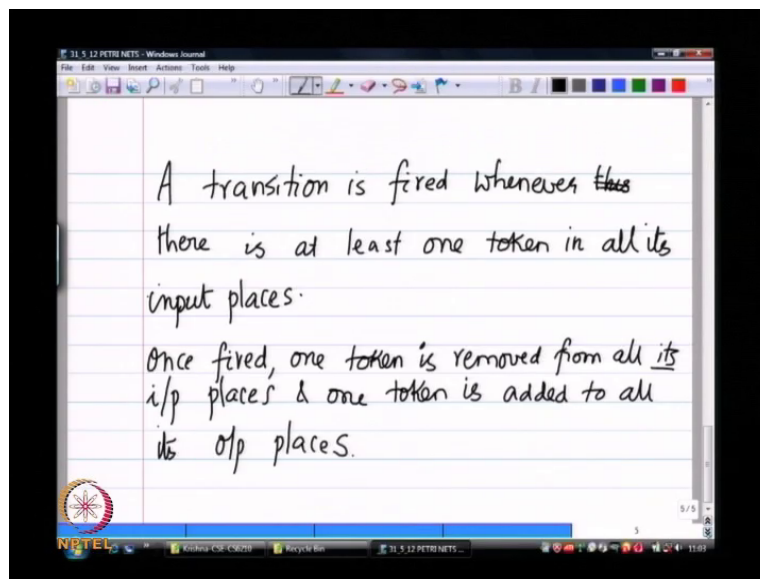 31_5_12 PETRI NETS - Windows Journal
File Edit View Insert Actions Tools Help
B I
A transition is fired whenever this
there is at least one token in all its
input places.
Once fired, one token is removed from all its
i/p places & one token is added to all
its o/p places.
5/5
5
NPTEL
Krishna-CSE-CS6210
Recycle Bin
31_5_12 PETRI NETS ...
11:03